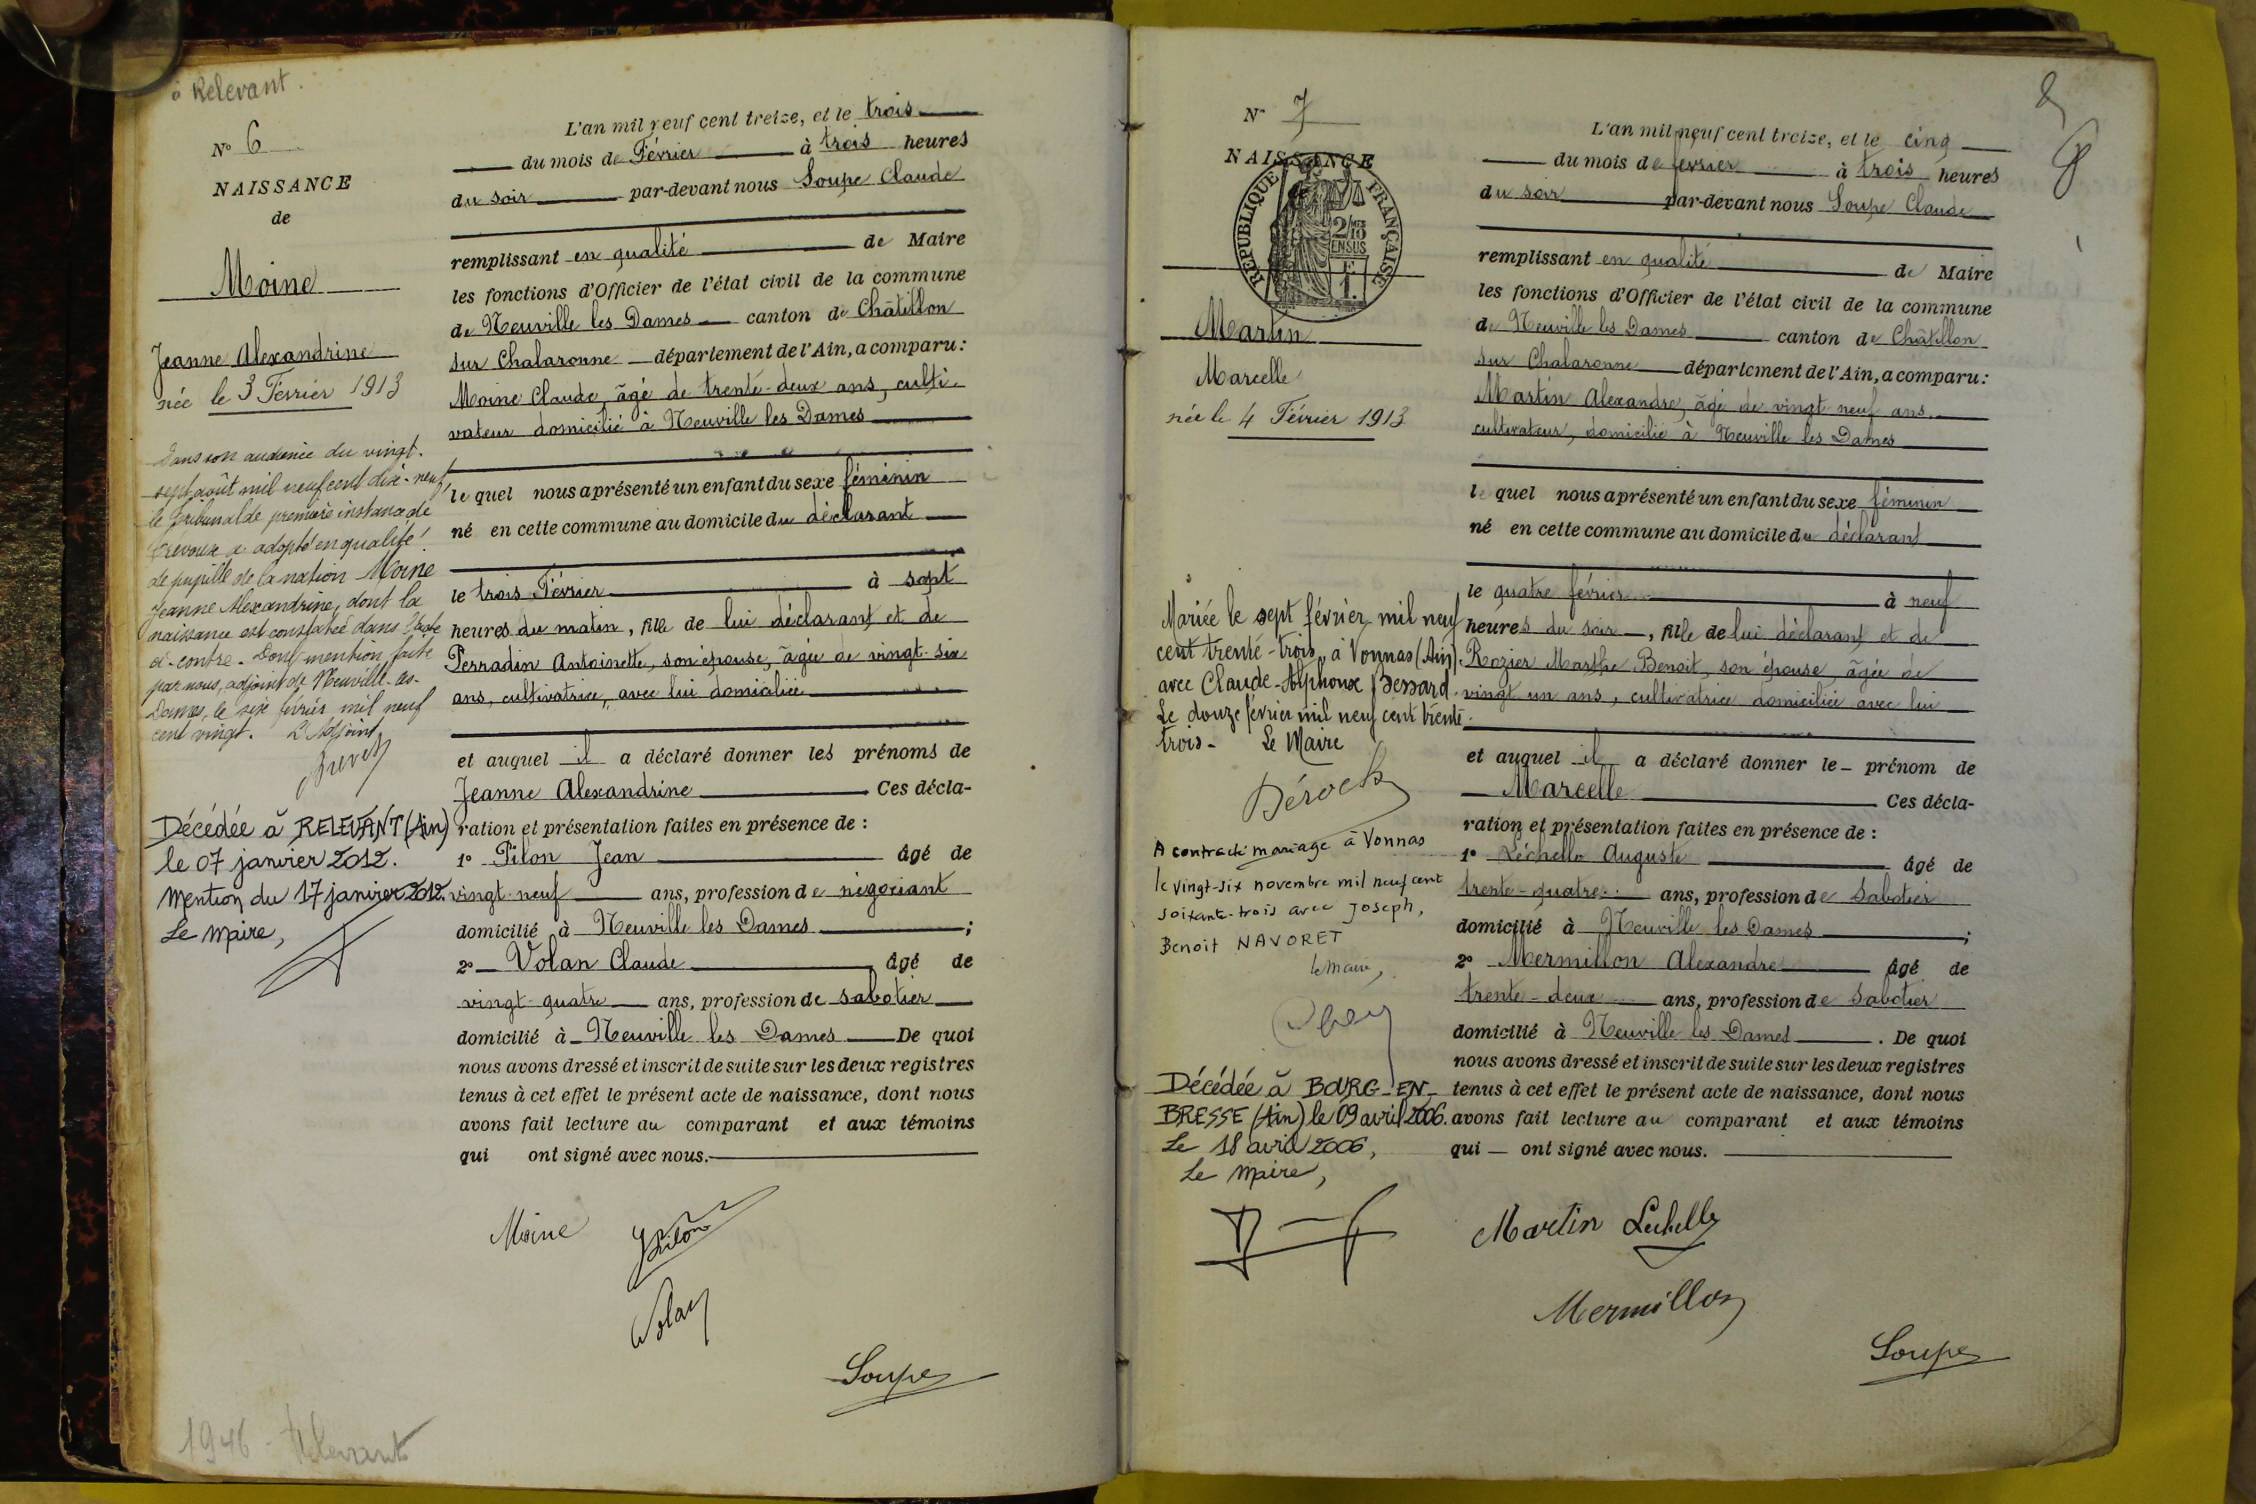 à Relevant.
N° 6
NAISSANCE
de
Moine
Jeanne Alexandrine
née le 3 Février 1913
Dans son audience du vingt-
sept août mil neuf cent dix-neuf,
le Tribunal de première instance de
Trévoux a adopté en qualité
de pupille de la nation Moine
Jeanne Alexandrine, dont la
naissance est constatée dans l'acte
ci-contre. Dont mention faite
par nous, adjoint de Neuville-les-
Dames, le six février mil neuf
cent vingt. L'Adjoint
Décédée à RELEVANT (Ain)
le 07 janvier 2012.
Mention du 17 janvier 2012.
Le Maire,
1946 - Relevant
L'an mil neuf cent treize, et le trois
du mois de Février à trois heures
du soir par-devant nous Soupe Claude
remplissant en qualité de Maire
les fonctions d'Officier de l'état civil de la commune
de Neuville les Dames canton de Châtillon
sur Chalaronne département de l'Ain, a comparu :
Moine Claude, âgé de trente-deux ans, culti-
vateur domicilié à Neuville les Dames
le quel nous a présenté un enfant du sexe féminin
né en cette commune au domicile du déclarant
le trois Février à sept
heures du matin, fille de lui déclarant et de
Perradin Antoinette, son épouse, âgée de vingt-six
ans, cultivatrice, avec lui domiciliée
et auquel il a déclaré donner les prénoms de
Jeanne Alexandrine Ces décla-
ration et présentation faites en présence de :
1° Pilon Jean âgé de
vingt-neuf ans, profession de négociant
domicilié à Neuville les Dames ;
2° Volan Claude âgé de
vingt-quatre ans, profession de sabotier
domicilié à Neuville les Dames De quoi
nous avons dressé et inscrit de suite sur les deux registres
tenus à cet effet le présent acte de naissance, dont nous
avons fait lecture au comparant et aux témoins
qui ont signé avec nous.
Moine Pilon
Volan
Soupe
N° 7
NAISSANCE
RÉPUBLIQUE FRANÇAISE
2/10
EN SUS
1.
Martin
Marcelle
née le 4 Février 1913
Mariée le sept février mil neuf
cent trente-trois, à Vonnas (Ain).
avec Claude-Alphonse Bessard.
Le douze février mil neuf cent trente-
trois- Le Maire
A contracté mariage à Vonnas
le vingt-six novembre mil neuf cent
soixante-trois avec Joseph,
Benoit NAVORET
le maire,
Décédée à BOURG-EN-
BRESSE (Ain) le 09 avril 2006.
Le 18 avril 2006,
Le Maire,
L'an mil neuf cent treize, et le cinq
du mois de février à trois heures
du soir par-devant nous Soupe Claude
remplissant en qualité de Maire
les fonctions d'Officier de l'état civil de la commune
de Neuville les Dames canton de Châtillon
sur Chalaronne département de l'Ain, a comparu :
Martin Alexandre, âgé de vingt neuf ans,
cultivateur, domicilié à Neuville les Dames
le quel nous a présenté un enfant du sexe féminin
né en cette commune au domicile du déclarant
le quatre février à neuf
heures du soir, fille de lui déclarant et de
Rozier Marthe Benoit, son épouse, âgée de
vingt un ans, cultivatrice domiciliée avec lui
et auquel il a déclaré donner le prénom de
Marcelle Ces décla-
ration et présentation faites en présence de :
1° Léchelle Auguste âgé de
trente-quatre ans, profession de sabotier
domicilié à Neuville les Dames ;
2° Mermillon Alexandre âgé de
trente-deux ans, profession de sabotier
domicilié à Neuville les Dames. De quoi
nous avons dressé et inscrit de suite sur les deux registres
tenus à cet effet le présent acte de naissance, dont nous
avons fait lecture au comparant et aux témoins
qui ont signé avec nous.
Martin Lechelle
Mermillon
Soupe